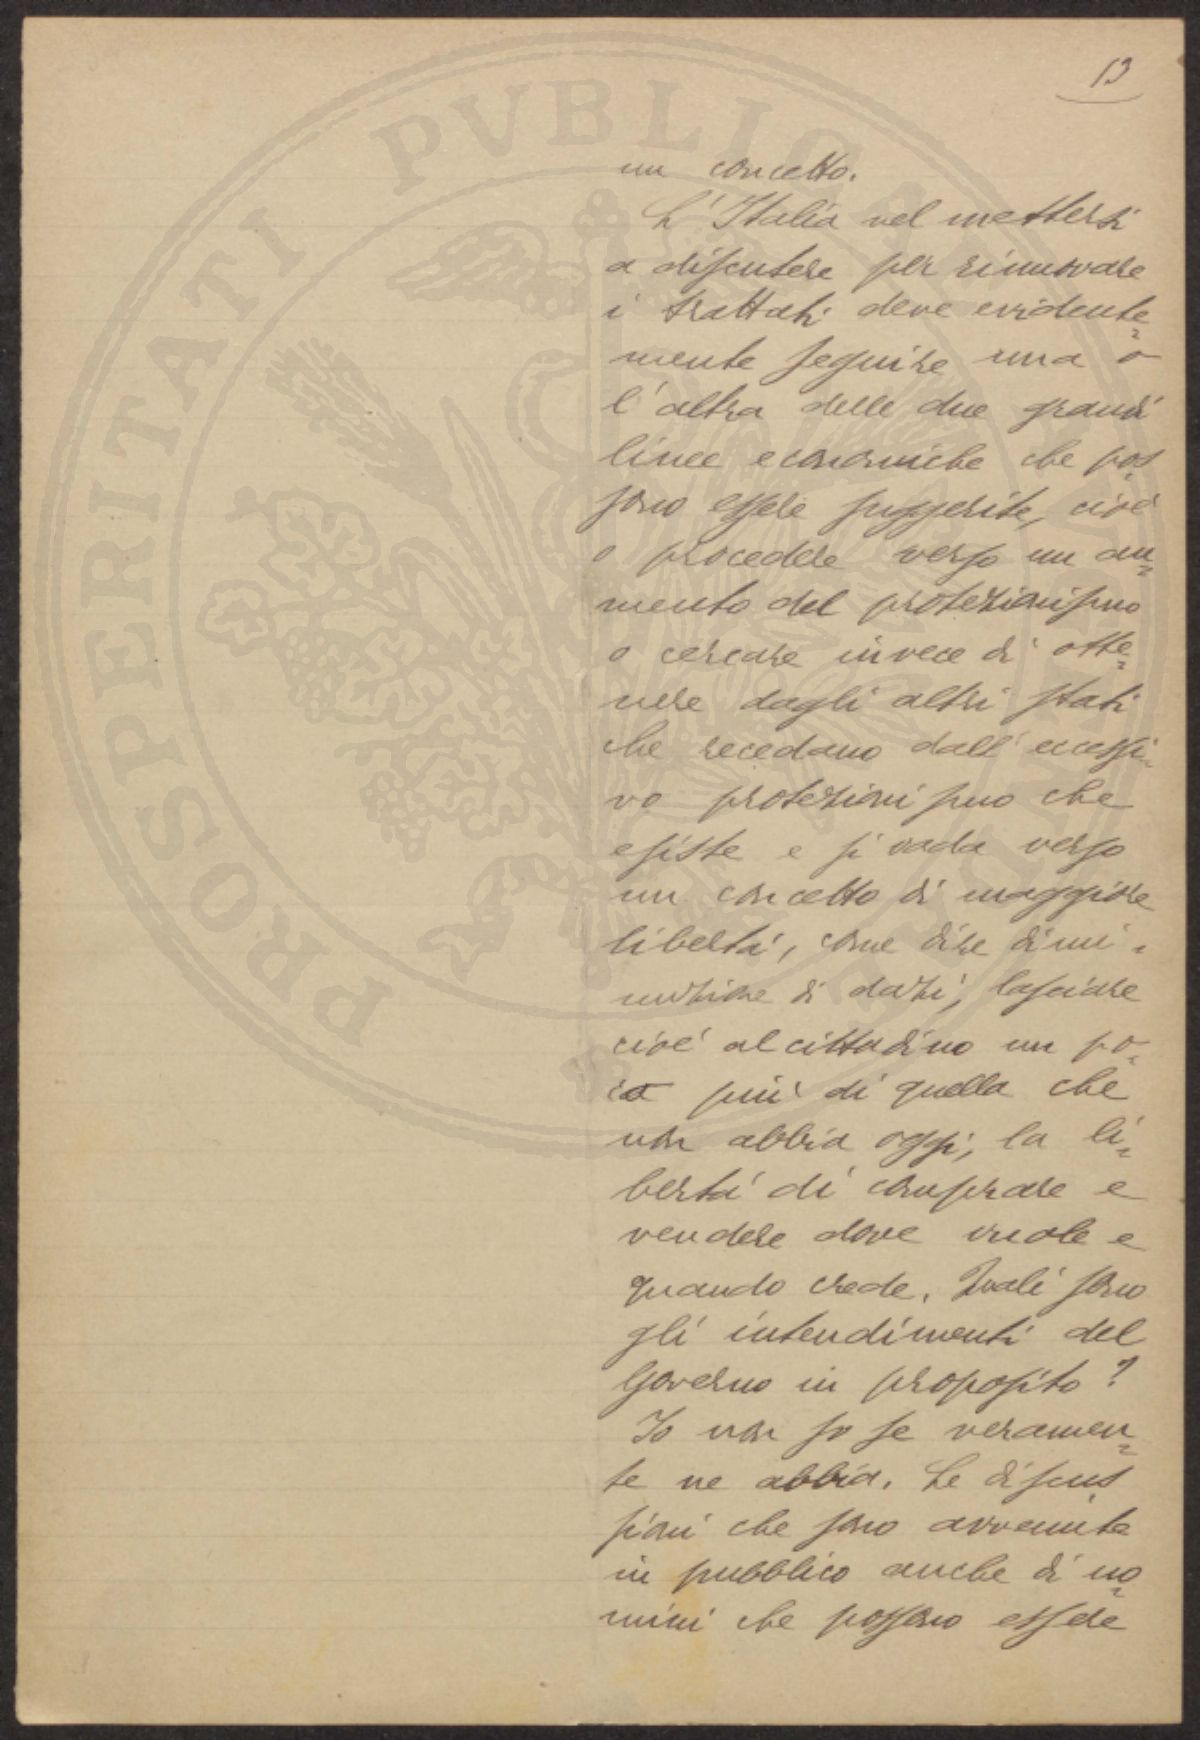 13
un concetto.
L'Italia nel mettersi
a discutere per rinnovare
i trattati deve evidente=
mente seguire una o
l'altra delle due grandi
linee economiche che pos=
sono essere suggerite, cioè
o procedere verso un au=
mento del protezionismo
o cercare invece di otte=
nere dagli altri stati
che recedano dall'eccessi=
vo protezionismo che
esiste e si vada verso
un concetto di maggiore
libertà, come dire dimi=
nuzione di dazi, lasciare
cioè al cittadino un po=
co più di quella che
non abbia oggi, la li=
bertà di comprare e
vendere dove vuole e
quando crede. Quali sono
gli intendimenti del
Governo in proposito?
Io non so se veramen=
te ne abbia. Le discus=
sioni che sono avvenute
in pubblico anche di uo=
mini che possono essere
PROSPERITATI PVBLICAE